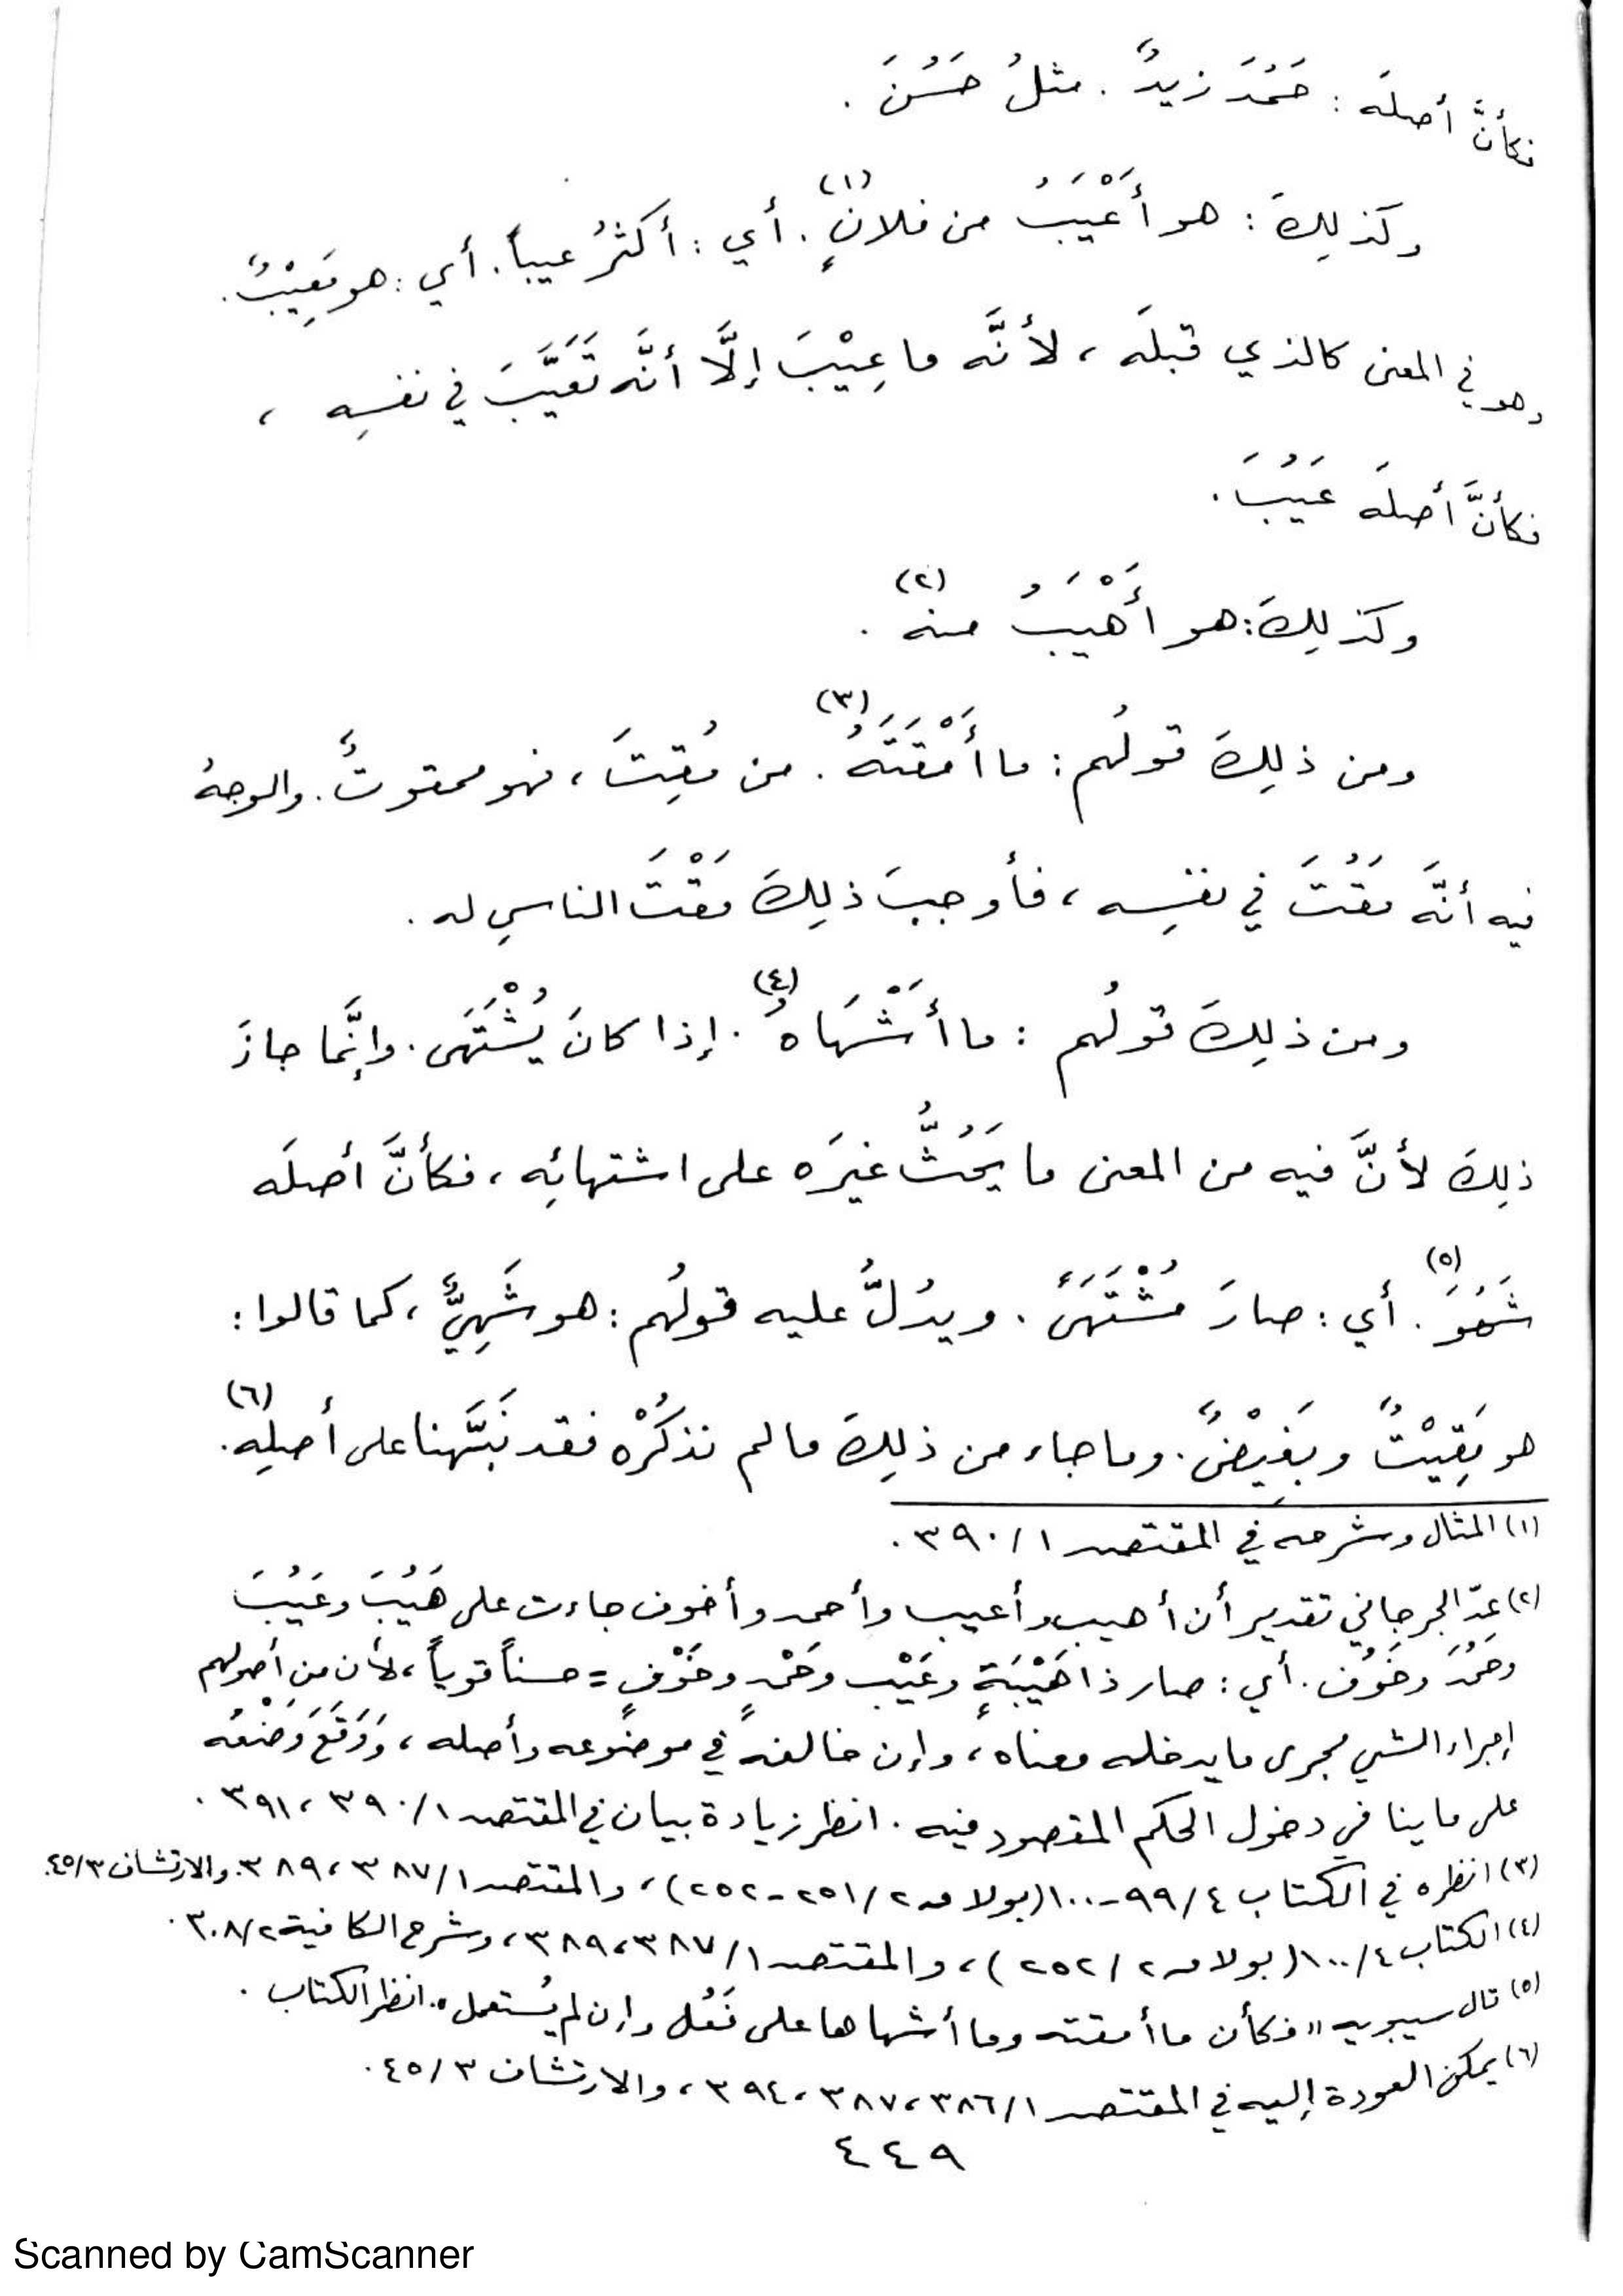 فكأنَّ أصلَه : حَمُدَ زيدٌ . مثلُ حَسُنَ .
وكذلِكَ : هو أَعْيَبُ من فلانٍ (١) . أي : أكثرُ عيباً . أي : هو مَعِيْبٌ .
وهو في المعنى كالذي قبلَه ، لأنَّه ما عِيْبَ إلَّا أنَّه تَعَيَّبَ في نفسِه ،
فكأنَّ أصلَه عَيُبَ .
وكذلِكَ : هو أَهْيَبُ منه (٢) .
ومن ذلِكَ قولُهم : ما أَمْقَتَهُ (٣) . من مُقِتَ ، فهو ممقوتٌ . والوجهُ
فيه أنَّه مَقُتَ في نفسِه ، فأوجبَ ذلِكَ مَقْتَ الناسِ له .
ومن ذلِكَ قولُهم : ما أَشْهَاهُ (٤) . إذا كانَ يُشْتَهَى . وإنَّما جازَ
ذلِكَ لأنَّ فيه من المعنى ما يَحُثُّ غيرَه على اشتهائِه ، فكأنَّ أصلَه
شَهُوَ (٥) . أي : صارَ مُشْتَهَىً . ويدُلُّ عليه قولُهم : هو شَهِيٌّ ، كما قالوا :
هو مَقِيْتٌ وبَغِيْضٌ . وما جاء من ذلِكَ مالم نذكُرْه فقد نَبَّهنا على أصلِهِ (٦) .
(١) المثال وشرحه في المقتصد ١/٣٩٠ .
(٢) عدّ الجرجاني تقدير أن أهيب وأعيب وأحمد وأخوف جاءت على هَيُبَ وعَيُبَ
وحَمُدَ وخَوُف . أي : صار ذا هَيْبَةٍ وعَيْب وحَمْدٍ وخَوْفٍ = حسناً قوياً ، لأن من أصولهم
إجراء الشيء مجرى ما يدخله معناه ، وإن خالفه في موضوعه وأصله ، وَوَقَعَ وَضْعُه
على ما ينا في دخول الحكم المقصود فيه . انظر زيادة بيان في المقتصد ١/٣٩٠ ، ٣٩١ .
(٣) انظره في الكتاب ٤/٩٩-١٠٠ (بولاق ٢/٢٥١-٢٥٢) ، والمقتصد ١/٣٨٧ ، ٣٨٩ . والارتشاف ٣/٤٥ .
(٤) الكتاب ٤/١٠٠ (بولاق ٢/٢٥٢) ، والمقتصد ١/٣٨٧ ، ٣٨٩ ، وشرح الكافية ٢/٣٠٨ .
(٥) قال سيبويه " فكأن ما أمقته وما أشهاها على فَعُل وإن لم يُستعمل " . انظر الكتاب .
(٦) يمكن العودة إليه في المقتصد ١/٣٨٦ ، ٣٨٧ ، ٣٩٤ ، والارتشاف ٣/٤٥ .
٤٤٩
Scanned by CamScanner